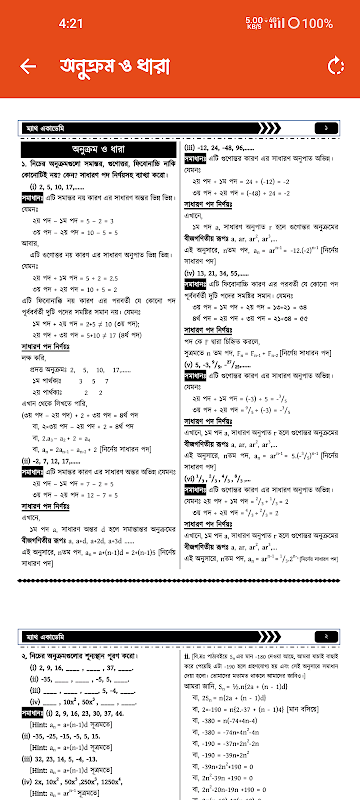 4:21
5.00 KB/S 4G 100%
অনুক্রম ও ধারা
ম্যাথ একাডেমি
১
অনুক্রম ও ধারা
১. নিচের অনুক্রমগুলো সমান্তর, গুণোত্তর, ফিবোনাচ্চি নাকি
কোনোটিই নয়? কেন? সাধারণ পদ নির্ণয়সহ ব্যাখ্যা করো।
(i) 2, 5, 10, 17,.....
সমাধানঃ এটি সমান্তর নয় কারণ এর সাধারণ অন্তর ভিন্ন ভিন্ন।
যেমনঃ
২য় পদ – ১ম পদ = 5 – 2 = 3
৩য় পদ – ২য় পদ = 10 – 5 = 5
আবার,
এটি গুণোত্তর নয় কারণ এর সাধারণ অনুপাত ভিন্ন ভিন্ন।
যেমনঃ
২য় পদ ÷ ১ম পদ = 5 ÷ 2 = 2.5
৩য় পদ ÷ ২য় পদ = 10 ÷ 5 = 2
এটি ফিবোনাচ্চি নয় কারণ এর পরবর্তী যে কোনো পদ
পূর্ববর্তী দুটি পদের সমষ্টির সমান নয়। যেমনঃ
১ম পদ + ২য় পদ = 2+5 ≠ 10 (৩য় পদ);
২য় পদ + ৩য় পদ = 5+10 ≠ 17 (৪র্থ পদ)
সাধারণ পদ নির্ণয়ঃ
লক্ষ করি,
প্রদত্ত অনুক্রমঃ 2, 5, 10, 17,.....
১ম পার্থক্যঃ 3 5 7
২য় পার্থক্যঃ 2 2
এখান থেকে লিখতে পারি,
(৩য় পদ – ২য় পদ) + 2 + ৩য় পদ = ৪র্থ পদ
বা, 2×৩য় পদ – ২য় পদ + 2 = ৪র্থ পদ
বা, 2.a₃ – a₂ + 2 = a₄
বা, aₙ = 2aₙ₋₁ – aₙ₋₂ + 2 [নির্ণেয় সাধারণ পদ]
(ii) -2, 7, 12, 17,.....
সমাধানঃ এটি সমান্তর কারণ এর সাধারণ অন্তর অভিন্ন যেমনঃ
২য় পদ – ১ম পদ = 7 – 2 = 5
৩য় পদ – ২য় পদ = 12 – 7 = 5
সাধারণ পদ নির্ণয়ঃ
এখানে,
১ম পদ a, সাধারণ অন্তর d হলে সমান্তর অনুক্রমের
বীজগণিতীয় রূপঃ a, a+d, a+2d, a+3d .....
এই অনুসারে, nতম পদ, aₙ = a+(n-1)d = 2+(n-1)5 [নির্ণেয়
সাধারণ পদ]
(iii) -12, 24, -48, 96,.....
সমাধানঃ এটি গুণোত্তর কারণ এর সাধারণ অনুপাত অভিন্ন।
যেমনঃ
২য় পদ ÷ ১ম পদ = 24 ÷ (-12) = -2
৩য় পদ ÷ ২য় পদ = (-48) ÷ 24 = -2
সাধারণ পদ নির্ণয়ঃ
এখানে,
১ম পদ a, সাধারণ অনুপাত r হলে গুণোত্তর অনুক্রমের
বীজগণিতীয় রূপঃ a, ar, ar², ar³,..
এই অনুসারে, nতম পদ, aₙ = arⁿ⁻¹ = -12.(-2)ⁿ⁻¹ [নির্ণেয়
সাধারণ পদ]
(iv) 13, 21, 34, 55,.....
সমাধানঃ এটি ফিবোনাচ্চি কারণ এর পরবর্তী যে কোনো পদ
পূর্ববর্তী দুটি পদের সমষ্টির সমান। যেমনঃ
৩য় পদ = ১ম পদ + ২য় পদ = ১৩+২১ = ৩৪
৪র্থ পদ = ২য় পদ + ৩য় পদ = ২১+৩৪ = ৫৫
সাধারণ পদ নির্ণয়ঃ
পদ কে F দ্বারা চিহ্নিত করলে,
সূত্রমতে n তম পদ, Fₙ = Fₙ₋₁ + Fₙ₋₂ [নির্ণেয় সাধারণ পদ]
(v) 5, -3, ⁹/₅, -²⁷/₂₅,.....
সমাধানঃ এটি গুণোত্তর কারণ এর সাধারণ অনুপাত অভিন্ন।
যেমনঃ
২য় পদ ÷ ১ম পদ = (-3) ÷ 5 = -³/₅
৩য় পদ ÷ ২য় পদ = ⁹/₅ ÷ (-3) = -³/₅
সাধারণ পদ নির্ণয়ঃ
এখানে, ১ম পদ a, সাধারণ অনুপাত r হলে গুণোত্তর অনুক্রমের
বীজগণিতীয় রূপঃ a, ar, ar², ar³,..
এই অনুসারে, nতম পদ, aₙ = arⁿ⁻¹ = 5.(-³/₅)ⁿ⁻¹ [নির্ণেয়
সাধারণ পদ]
(vi) ¹/₃, ²/₃, ⁴/₃, ⁸/₃,...
সমাধানঃ এটি গুণোত্তর কারণ এর সাধারণ অনুপাত অভিন্ন।
যেমনঃ ২য় পদ ÷ ১ম পদ = ²/₃ ÷ ¹/₃ = 2
৩য় পদ ÷ ২য় পদ = ⁴/₃ ÷ ²/₃ = 2
সাধারণ পদ নির্ণয়ঃ
এখানে, ১ম পদ a, সাধারণ অনুপাত r হলে গুণোত্তর অনুক্রমের
বীজগণিতীয় রূপঃ a, ar, ar², ar³,..
এই অনুসারে, nতম পদ, aₙ = arⁿ⁻¹ = ¹/₃.2ⁿ⁻¹ [নির্ণেয় সাধারণ পদ]
ম্যাথ একাডেমি
২
২. নিচের অনুক্রমগুলোর শূন্যস্থান পূরণ করো।
(i) 2, 9, 16, ____ , ____ , 37, ____.
(ii) -35, ____ , ____ , -5, 5, ____.
(iii) ____ , ____ , ____ , 5, -4, ____.
(iv) ____ , 10x², 50x³, ____ , ____.
সমাধানঃ (i) 2, 9, 16, 23, 30, 37, 44.
[Hint: aₙ = a+(n-1)d সূত্রমতে]
(ii) -35, -25, -15, -5, 5, 15.
[Hint: aₙ = a+(n-1)d সূত্রমতে]
(iii) 32, 23, 14, 5, -4, -13.
[Hint: aₙ = a+(n-1)d সূত্রমতে]
(iv) 2x, 10x², 50x³, 250x⁴, 1250x⁵,
[Hint: aₙ = arⁿ⁻¹ সূত্রমতে]
আমরা জানি, Sₙ = ½.n{2a + (n - 1)d}
বা, 2Sₙ = n{2a + (n - 1)d}
বা, 2×-190 = n{2.-37 + (n - 1)4} [মান বসিয়ে]
বা, -380 = n(-74+4n-4)
বা, -380 = -74n+4n²-4n
বা, -190 = -37n+2n²-2n
বা, -190 = -39n+2n²
বা, -39n+2n²+190 = 0
বা, 2n²-39n +190 = 0
বা, 2n²-20n-19n +190 = 0